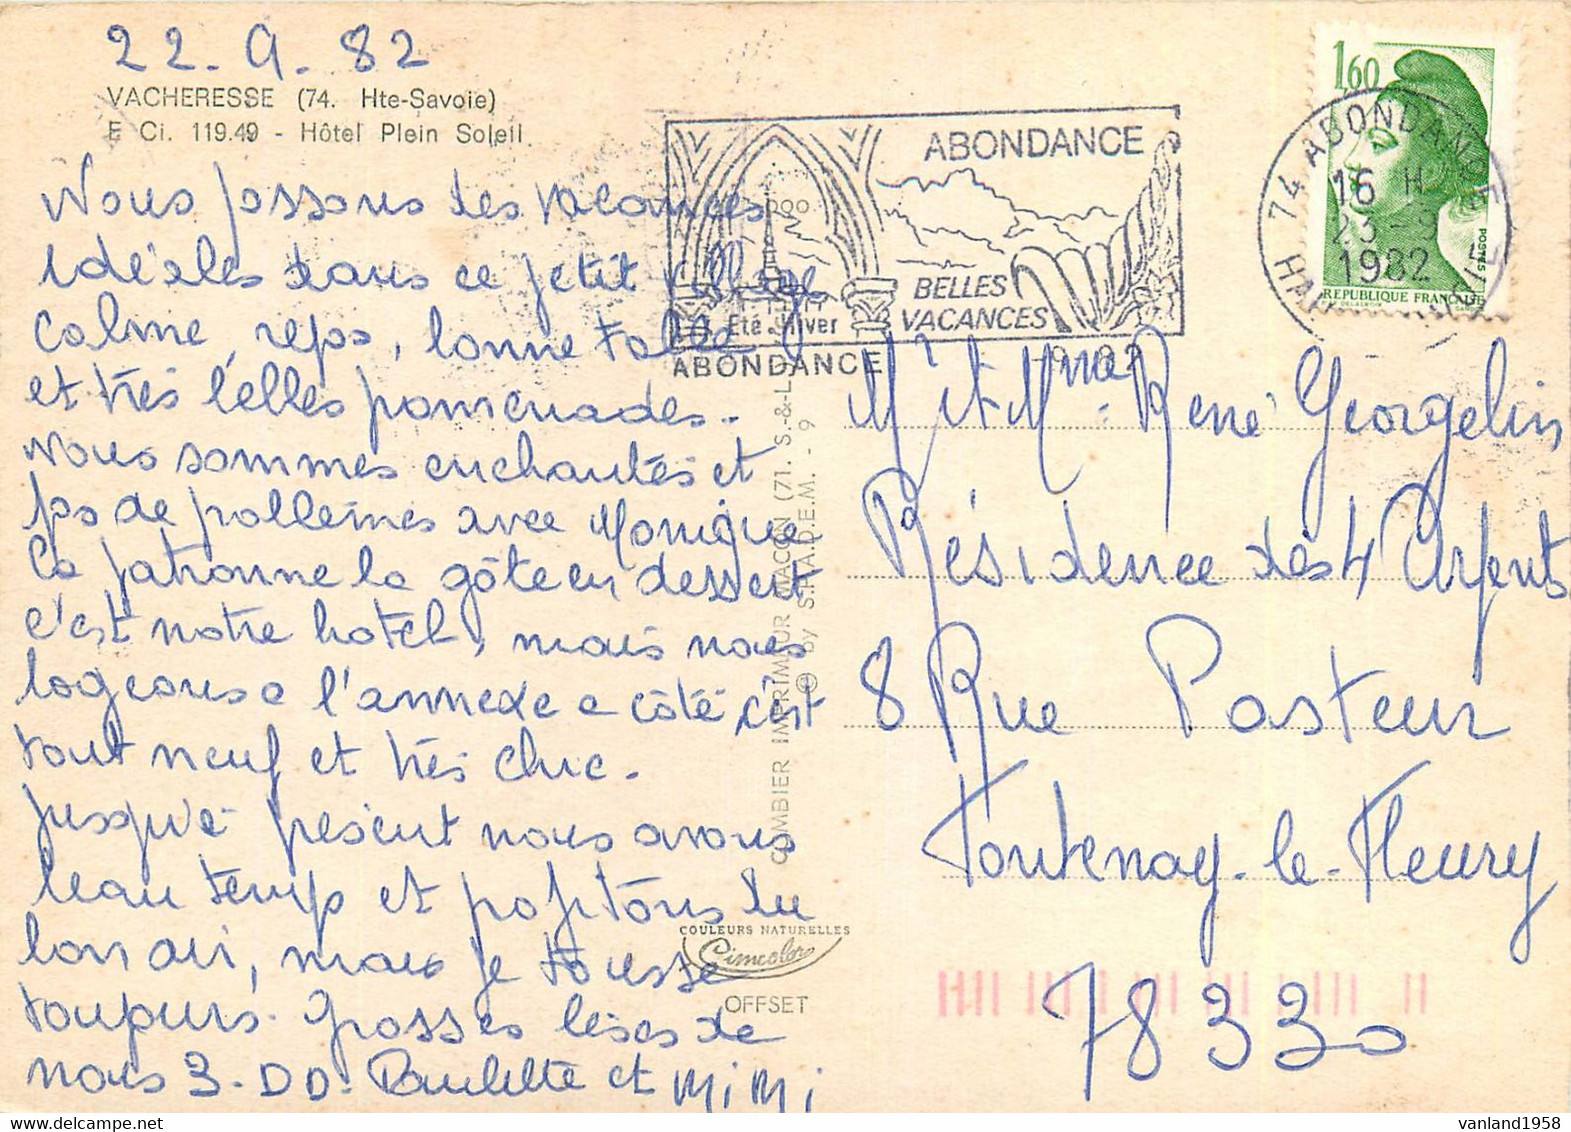 22.9.82
VACHERESSE (74. Hte-Savoie)
E Ci. 119.49 - Hôtel Plein Soleil
Nous passons des vacances
idéales dans ce petit village
calme, repos, bonne table
et très belles promenades.
Nous sommes enchantés et
pas de problèmes avec Monique
La patronne la gâte en dessert
c'est notre hotel, mais nous
logeons a l'annexe a côté c'est
tout neuf et très chic.
Jusqu'à présent nous avons
beau temps et profitons du
bon air, mais je tousse
toujours. Grosses bises de
nous 3. DD. Paulette et MiMi
ABONDANCE
BELLES
VACANCES
Eté-Hiver
ABONDANCE
1,60
POSTES
REPUBLIQUE FRANCAISE
74 ABONDANCE
16 H
23-9
1982
HAUTE SAVOIE
COMBIER IMPRIMEUR MACON (71. S.-&-L.)
© by S.P.A.D.E.M. - 9
COULEURS NATURELLES
Cimcolor
OFFSET
Mr et Mme René Georgelin
Résidence des 4 Arpents
8 Rue Pasteur
Fontenay-le-Fleury
78330
vanland1958